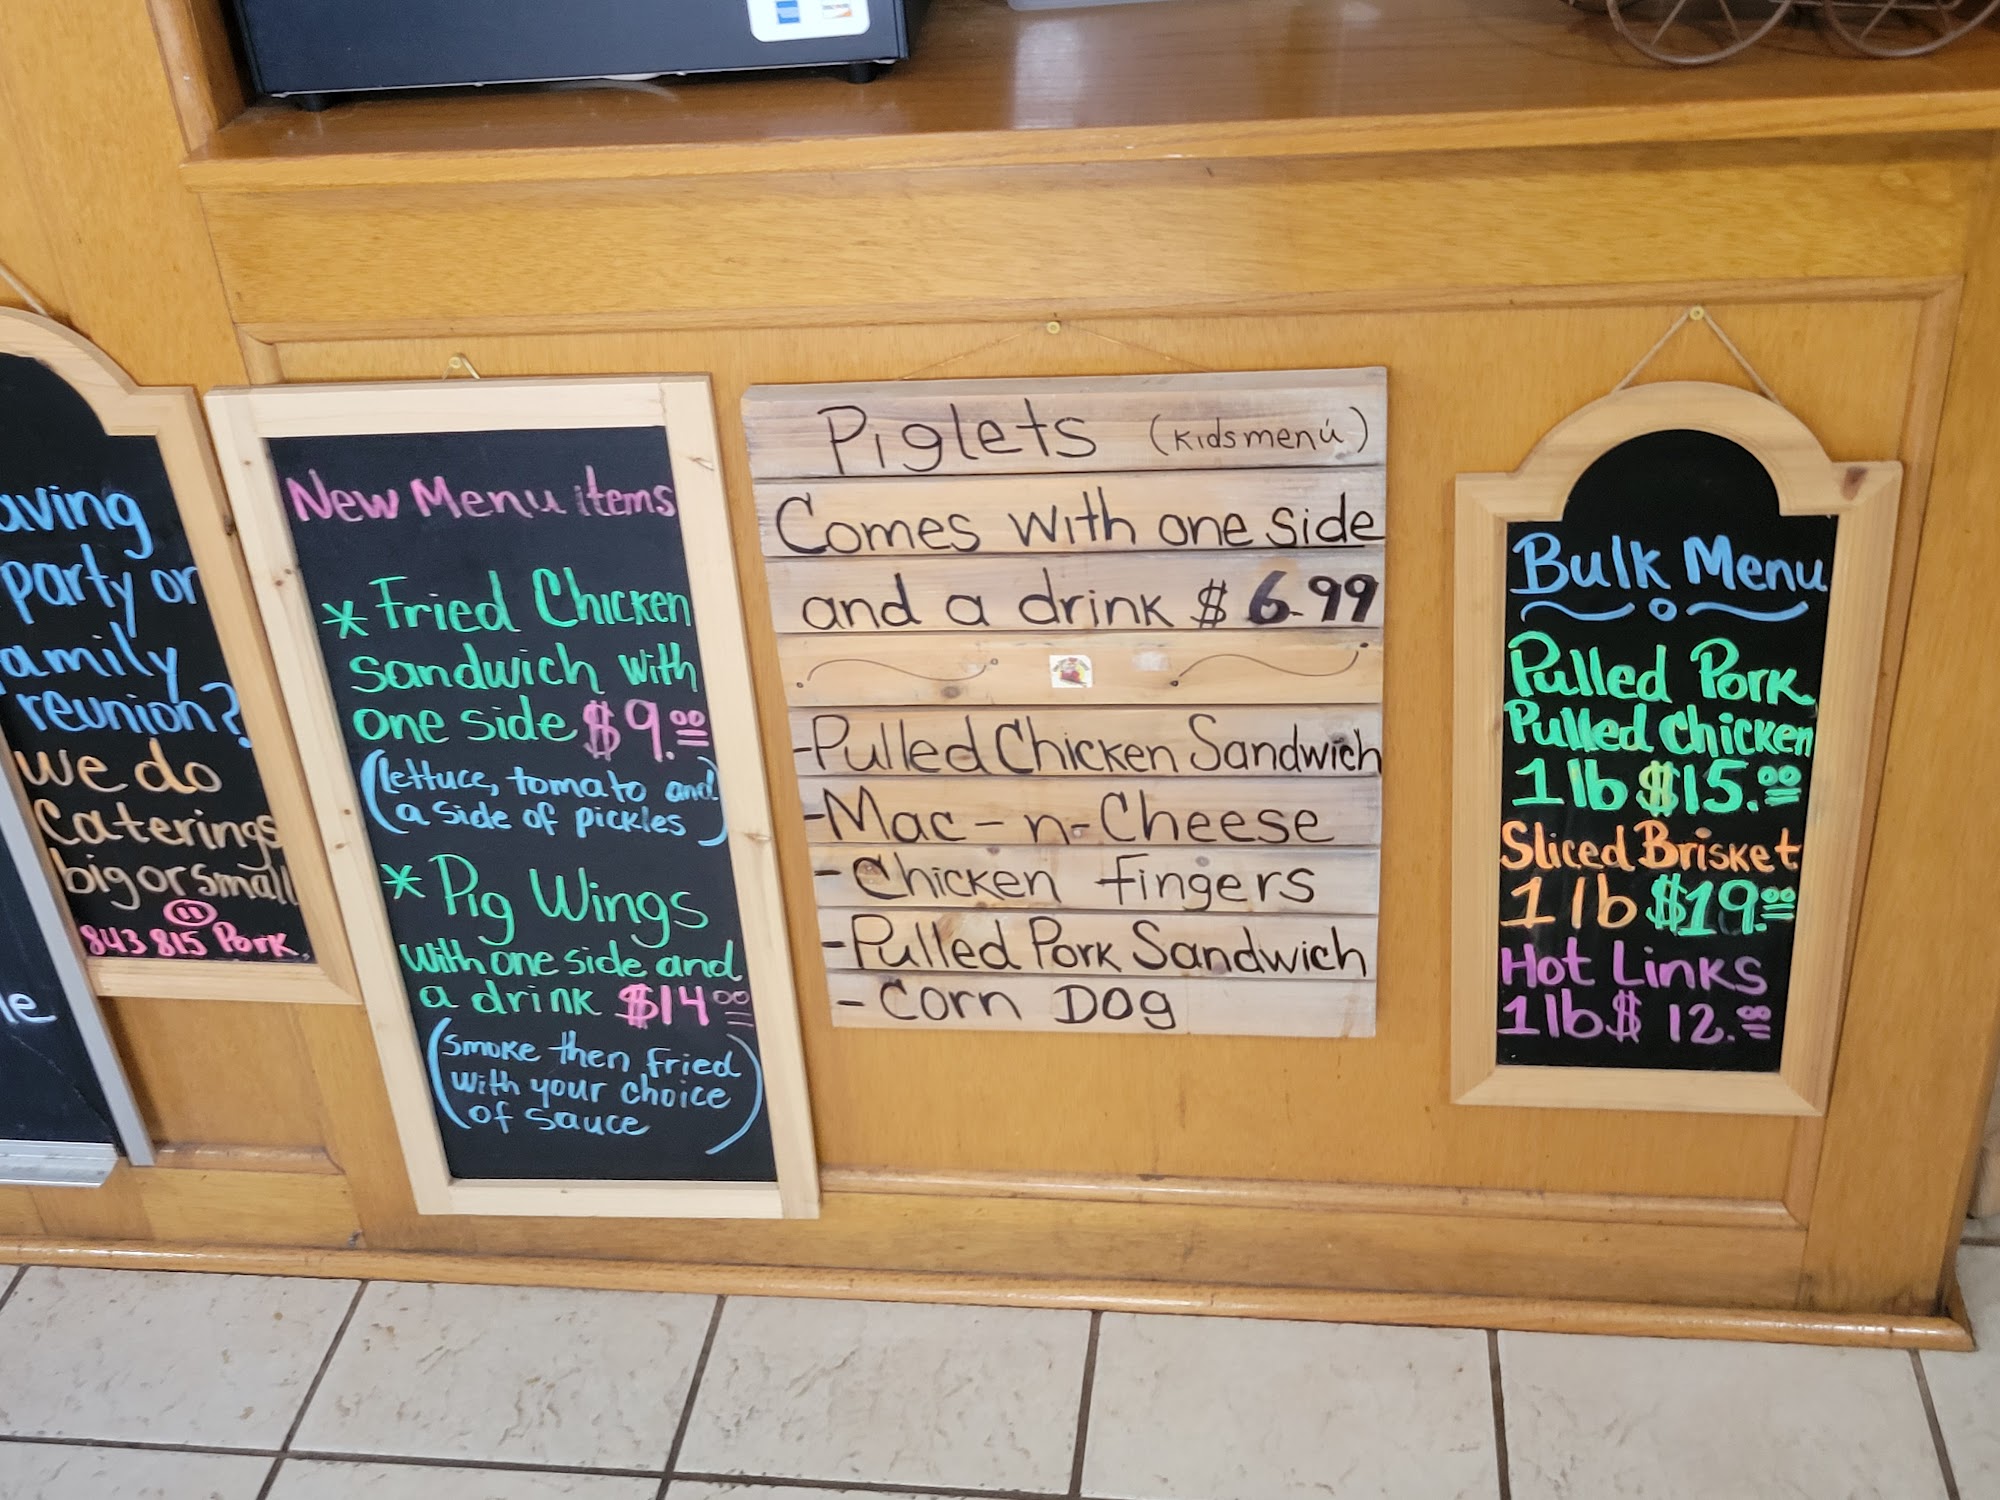 aving
party or
amily
reunion?
we do
Caterings
big or small
843 815 Pork.
le
New Menu items
* Fried Chicken
sandwich with
one side $9.00
(lettuce, tomato and
a side of pickles)
* Pig Wings
with one side and
a drink $14.00
(smoke then fried
with your choice
of sauce)
Piglets (Kidsmenú)
Comes with one side
and a drink $6.99
-Pulled Chicken Sandwich
-Mac-n-Cheese
-Chicken fingers
-Pulled Pork Sandwich
-Corn Dog
Bulk Menu
Pulled Pork
Pulled Chicken
1 lb $15.00
Sliced Brisket
1 lb $19.00
Hot Links
1 lb $12.00